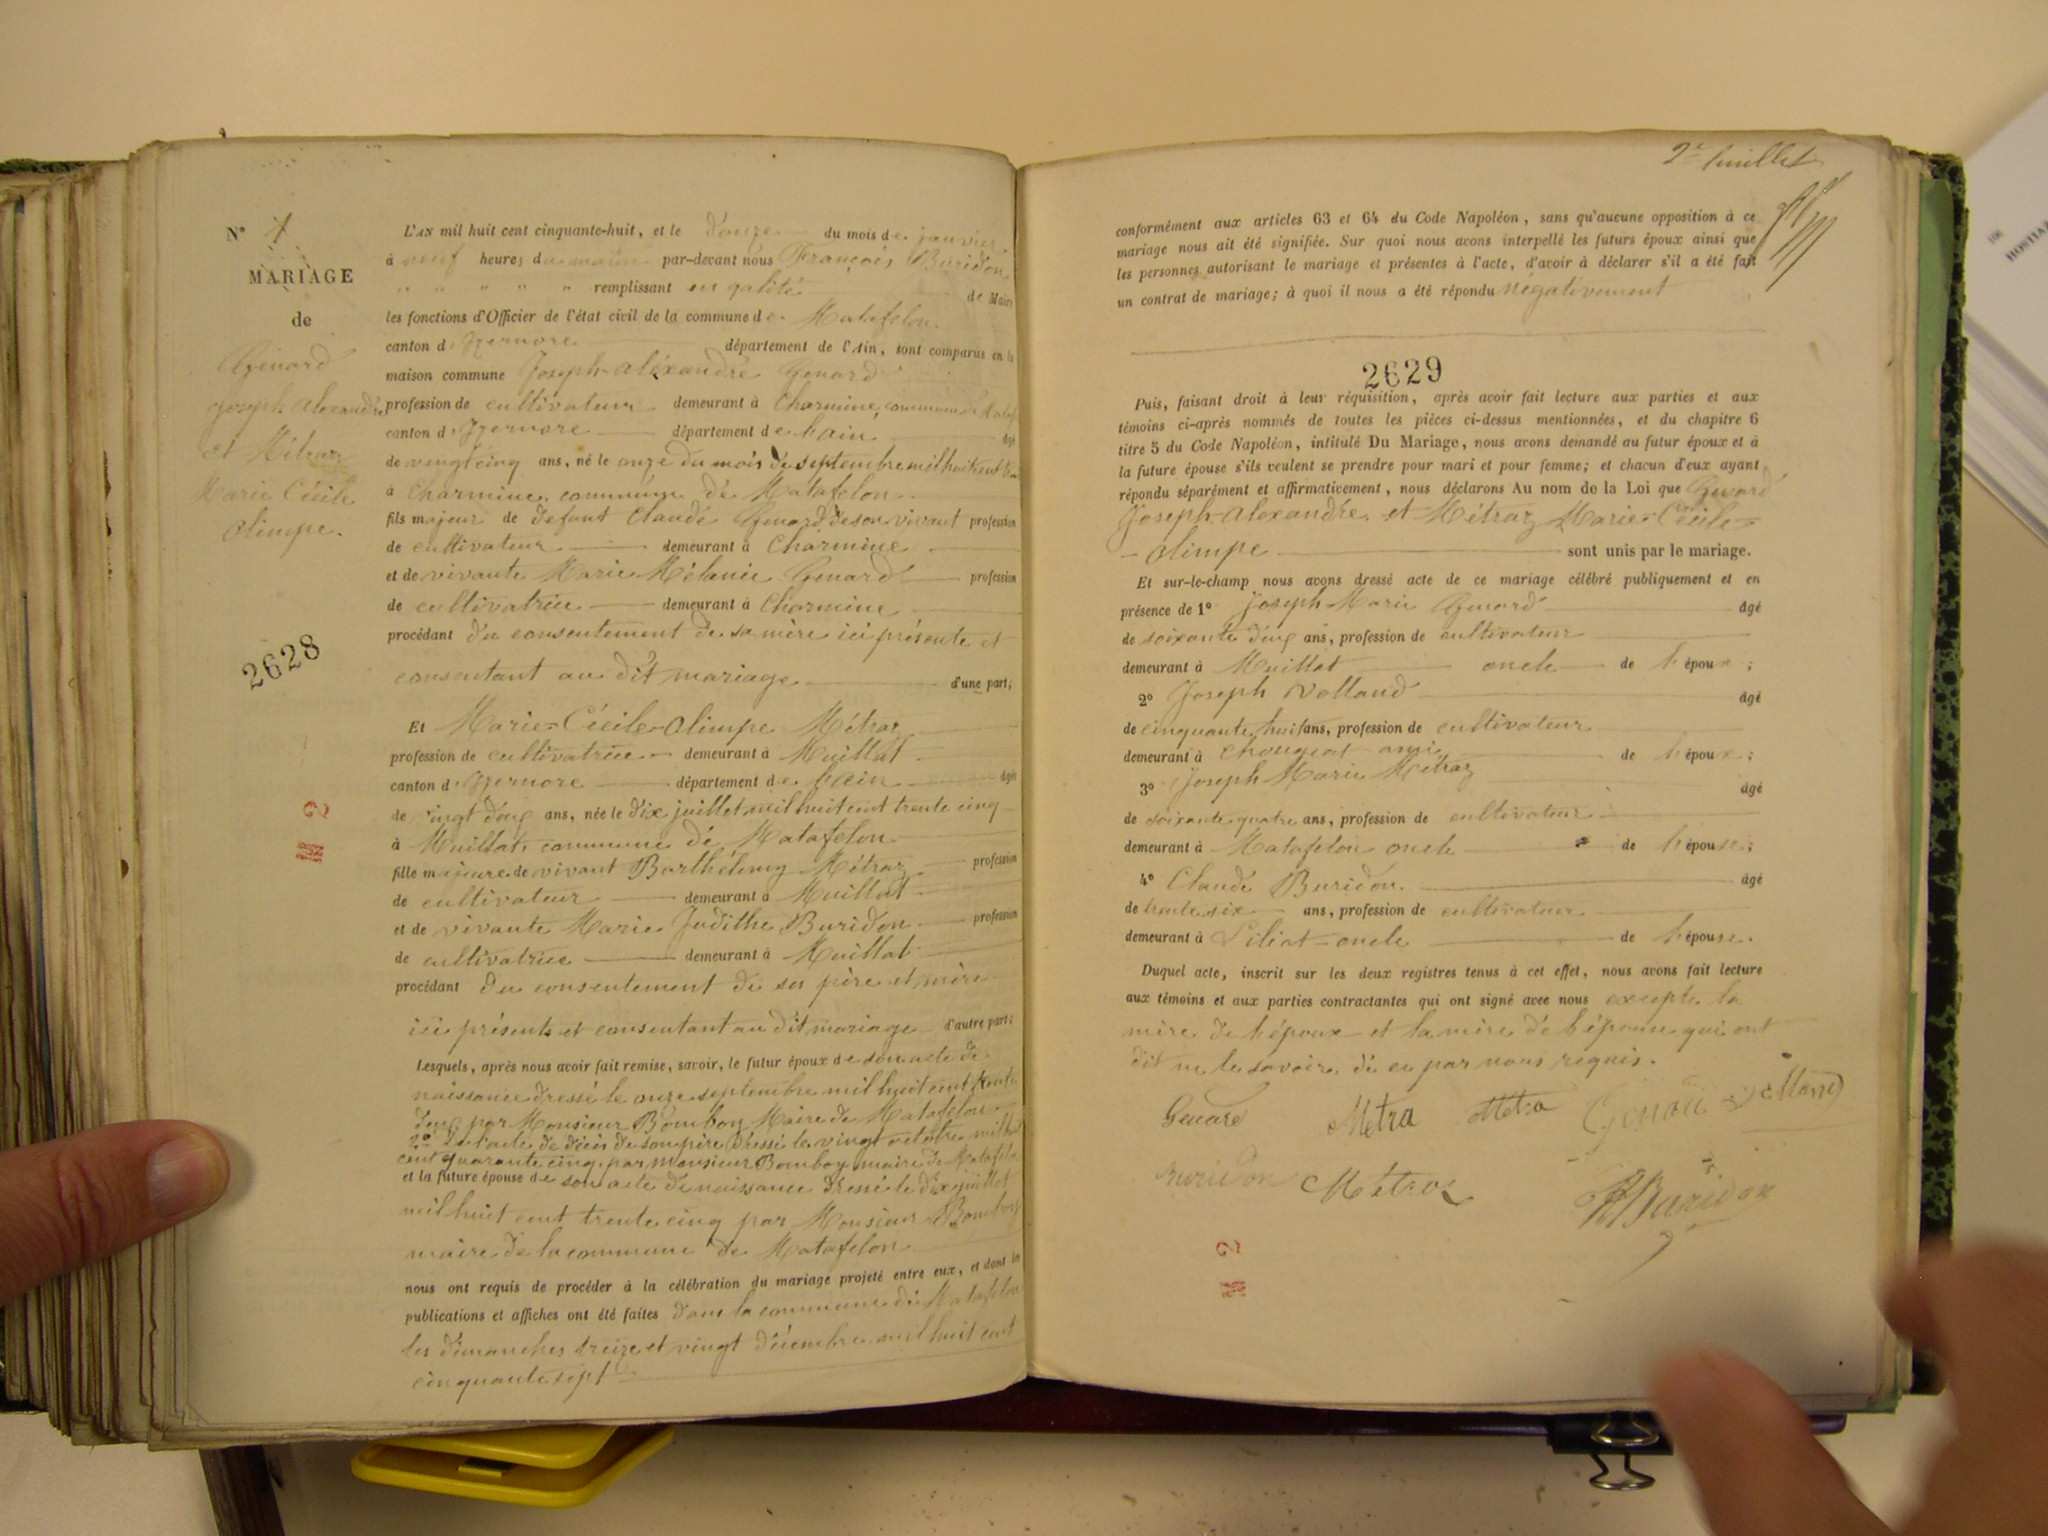 N° 1
MARIAGE
de
Genard
Joseph Alexandre
et Métraz
Marie Cécile
Olimpe.
2628
L'AN mil huit cent cinquante-huit, et le douze du mois de janvier
à neuf heures du matin par-devant nous François Buridon
" " " " " remplissant en qalité de Maire
les fonctions d'Officier de l'état civil de la commune de Matafelon
canton d'Izernore département de l'Ain, sont comparus en la
maison commune Joseph-Alexandre Genard
profession de cultivateur demeurant à Charmine, commune de Mataf
canton d'Izernore département de l'ain âgé
de vingt cinq ans, né le onze du mois de septembre mil huit cent
à Charmine, commune de Matafelon
fils majeur de defunt Claude Genard de son vivant profession
de cultivateur demeurant à Charmine
et de vivante Marie Mélanie Genard profession
de cultivatrice demeurant à Charmine
procédant du consentement de sa mère ici présente et
consentant au dit mariage d'une part;
Et Marie-Cécile-Olimpe Métraz
profession de cultivatrice demeurant à Meillat
canton d'Izernore département de l'ain âgée
de vingt deux ans, née le dix juillet mil huit cent trente cinq
à Meillat, commune de Matafelon
fille majeure de vivant Barthélemy Métraz profession
de cultivateur demeurant à Meillat
et de vivante Marie Judithe Buridon profession
de cultivatrice demeurant à Meillat
procédant du consentement de ses père et mère
ici présents et consentant au dit mariage d'autre part;
Lesquels, après nous avoir fait remise, savoir, le futur époux de son acte de
naissance dressé le onze septembre mil huit cent trente
deux par Monsieur Bomboy Maire de Matafelon
2° de l'acte de décès de son père dressé le vingt octobre mil huit
cent quarante cinq par monsieur Bomboy maire de Matafelo
et la future épouse de son acte de naissance dressé le dix juillet
mil huit cent trente cinq par Monsieur Bomboy
maire de la commune de Matafelon
nous ont requis de procéder à la célébration du mariage projeté entre eux, et dont les
publications et affiches ont été faites dans la commune de Matafelon
les dimanches treize et vingt décembre mil huit cent
cinquante sept
2e feuillet
conformément aux articles 63 et 64 du Code Napoléon, sans qu'aucune opposition à ce
mariage nous ait été signifiée. Sur quoi nous avons interpellé les futurs époux ainsi que
les personnes autorisant le mariage et présentes à l'acte, d'avoir à déclarer s'il a été fait
un contrat de mariage; à quoi il nous a été répondu négativement
2629
Puis, faisant droit à leur réquisition, après avoir fait lecture aux parties et aux
témoins ci-après nommés de toutes les pièces ci-dessus mentionnées, et du chapitre 6
titre 5 du Code Napoléon, intitulé Du Mariage, nous avons demandé au futur époux et à
la future épouse s'ils veulent se prendre pour mari et pour femme; et chacun d'eux ayant
répondu séparément et affirmativement, nous déclarons Au nom de la Loi que Genard
Joseph-Alexandre et Métraz Marie-Cécile-
-Olimpe sont unis par le mariage.
Et sur-le-champ nous avons dressé acte de ce mariage célébré publiquement et en
présence de 1° Joseph-Marie Genard âgé
de soixante deux ans, profession de cultivateur
demeurant à Meillat oncle de l'époux;
2° Joseph Volland âgé
de cinquante huit ans, profession de cultivateur
demeurant à Chougeat ami de l'époux;
3° Joseph Marie Métraz âgé
de soixante quatre ans, profession de cultivateur
demeurant à Matafelon oncle de l'épouse;
4° Claude Buridon. âgé
de trente six ans, profession de cultivateur
demeurant à oncle de l'épouse.
Duquel acte, inscrit sur les deux registres tenus à cet effet, nous avons fait lecture
aux témoins et aux parties contractantes qui ont signé avec nous excepté la
mère de l'époux et la mère de l'épouse qui ont
dit ne le savoir de ce par nous requis.
Genard Metra Metra Genard
Buridon Métraz Buridon